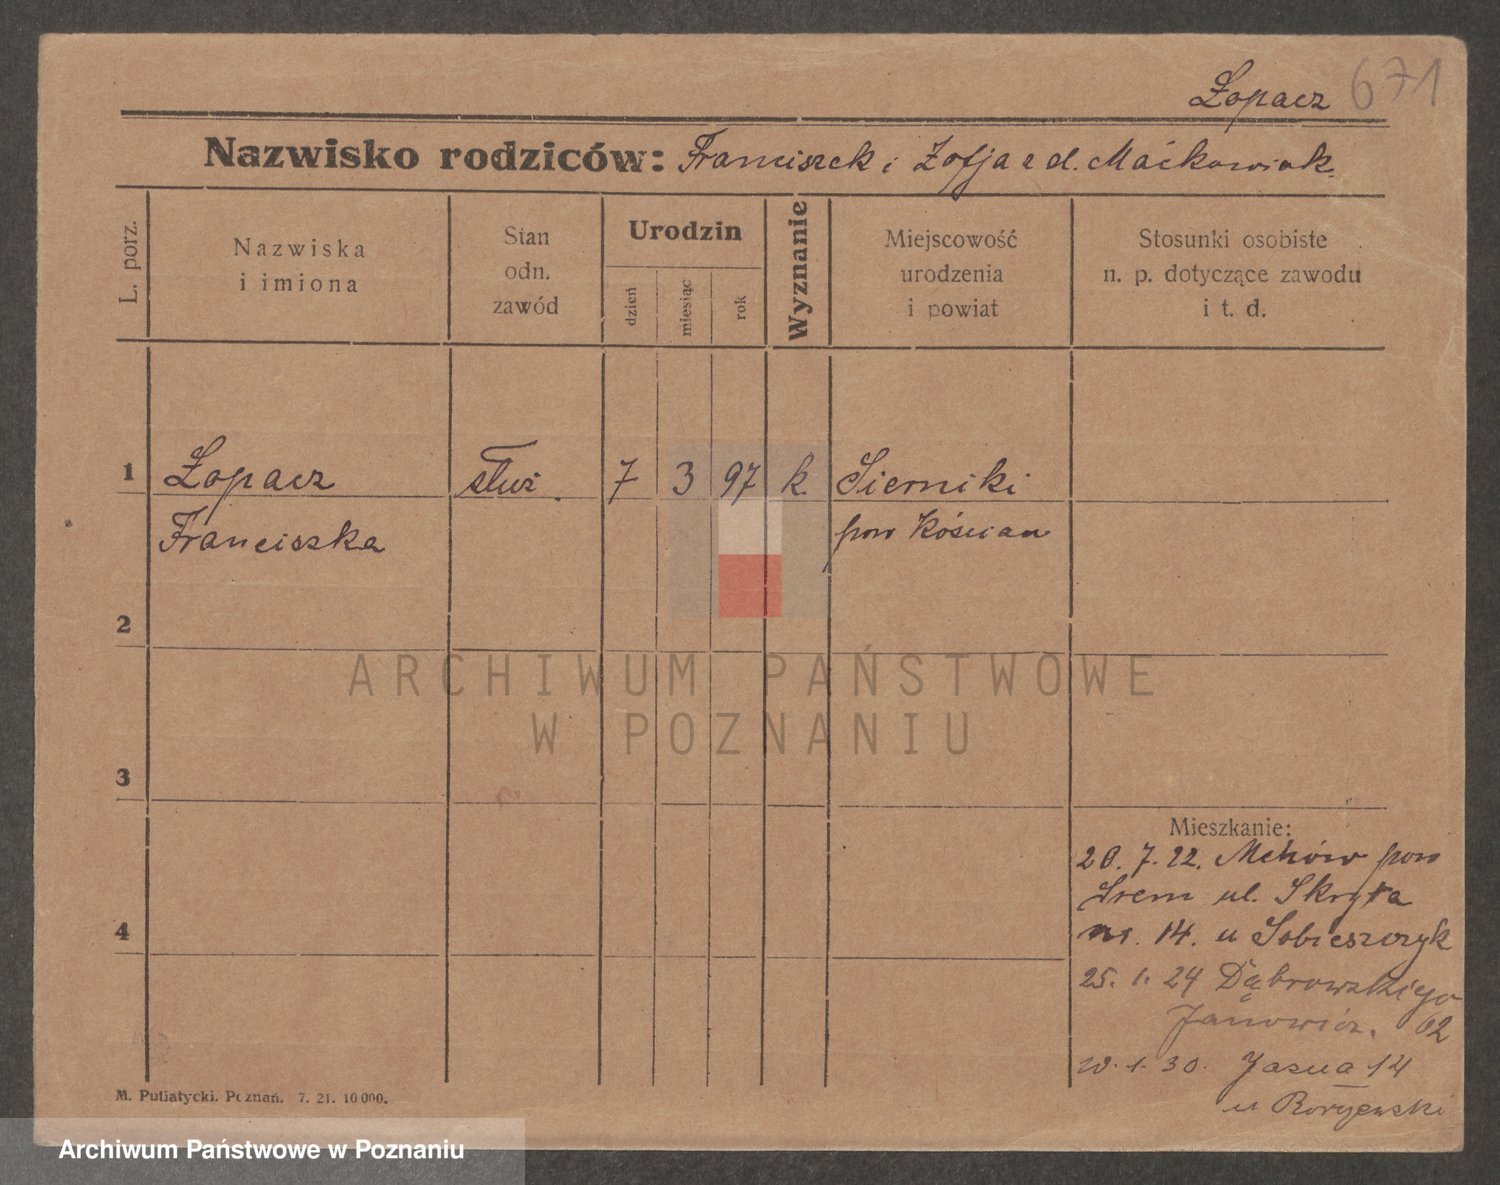 Łopacz 671
Nazwisko rodziców: Franciszek i Zofja z d. Maćkowiak
L. porz.
Nazwiska
i imiona
Stan
odn.
zawód
Urodzin
dzień
miesiąc
rok
Wyznanie
Miejscowość
urodzenia
i powiat
Stosunki osobiste
n. p. dotyczące zawodu
i t. d.
1 Łopacz służ. 7 3 97 k. Sierniki
Franciszka pow Kościan
2
ARCHIWUM PAŃSTWOWE
W POZNANIU
3
Mieszkanie:
20. 7. 22. pow
Śrem ul. Skryta
4
nr. 14. u Sobieszczyk
25. 1. 24 Dąbrowskiego
62
1. 30. Jasna 14
u
M. Putiatycki. Poznań. 7. 21. 10 000.
Archiwum Państwowe w Poznaniu